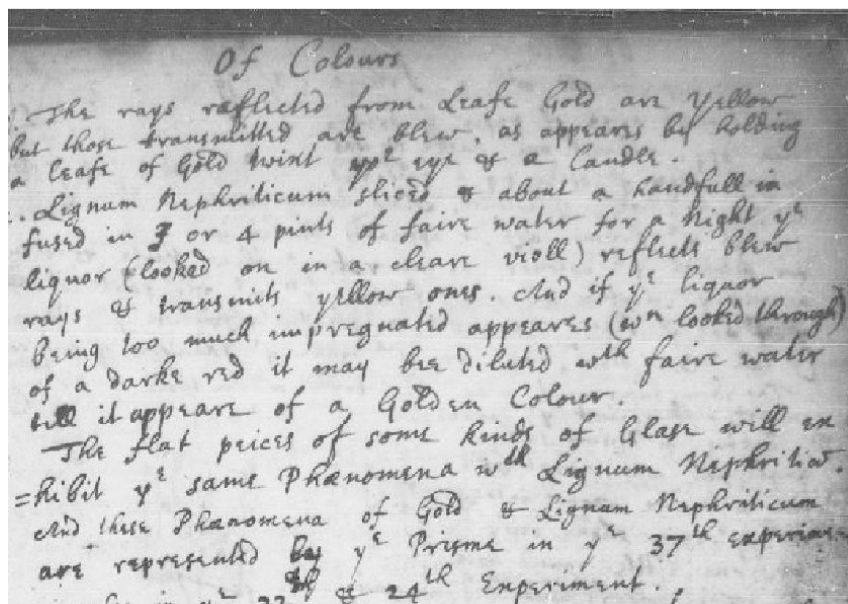 Of Colours
The rays reflected from Leafe Gold are yellow
but those transmitted are blew, as appeares by holding
a leafe of Gold twixt yor eye & a Candle.
Lignum Nephriticum sliced & about a handfull in
fused in 3 or 4 pints of faire water for a Night ye
liquor (looked on in a cleare violl) reflects blew
rays & transmits yellow ones. And if ye liquor
being too much impregnated appeares (wn looked through)
of a darke red it may bee diluted wth faire water
till it appeare of a Golden Colour.
The flat peices of some kinds of Glase will ex
=hibit ye same Phænomena wth Lignum Nephritic̄.
And these Phænomena of Gold & Lignum Nephriticum
are represented by ye Prisme in ye 37th experime-
ye & 24th Experiment.